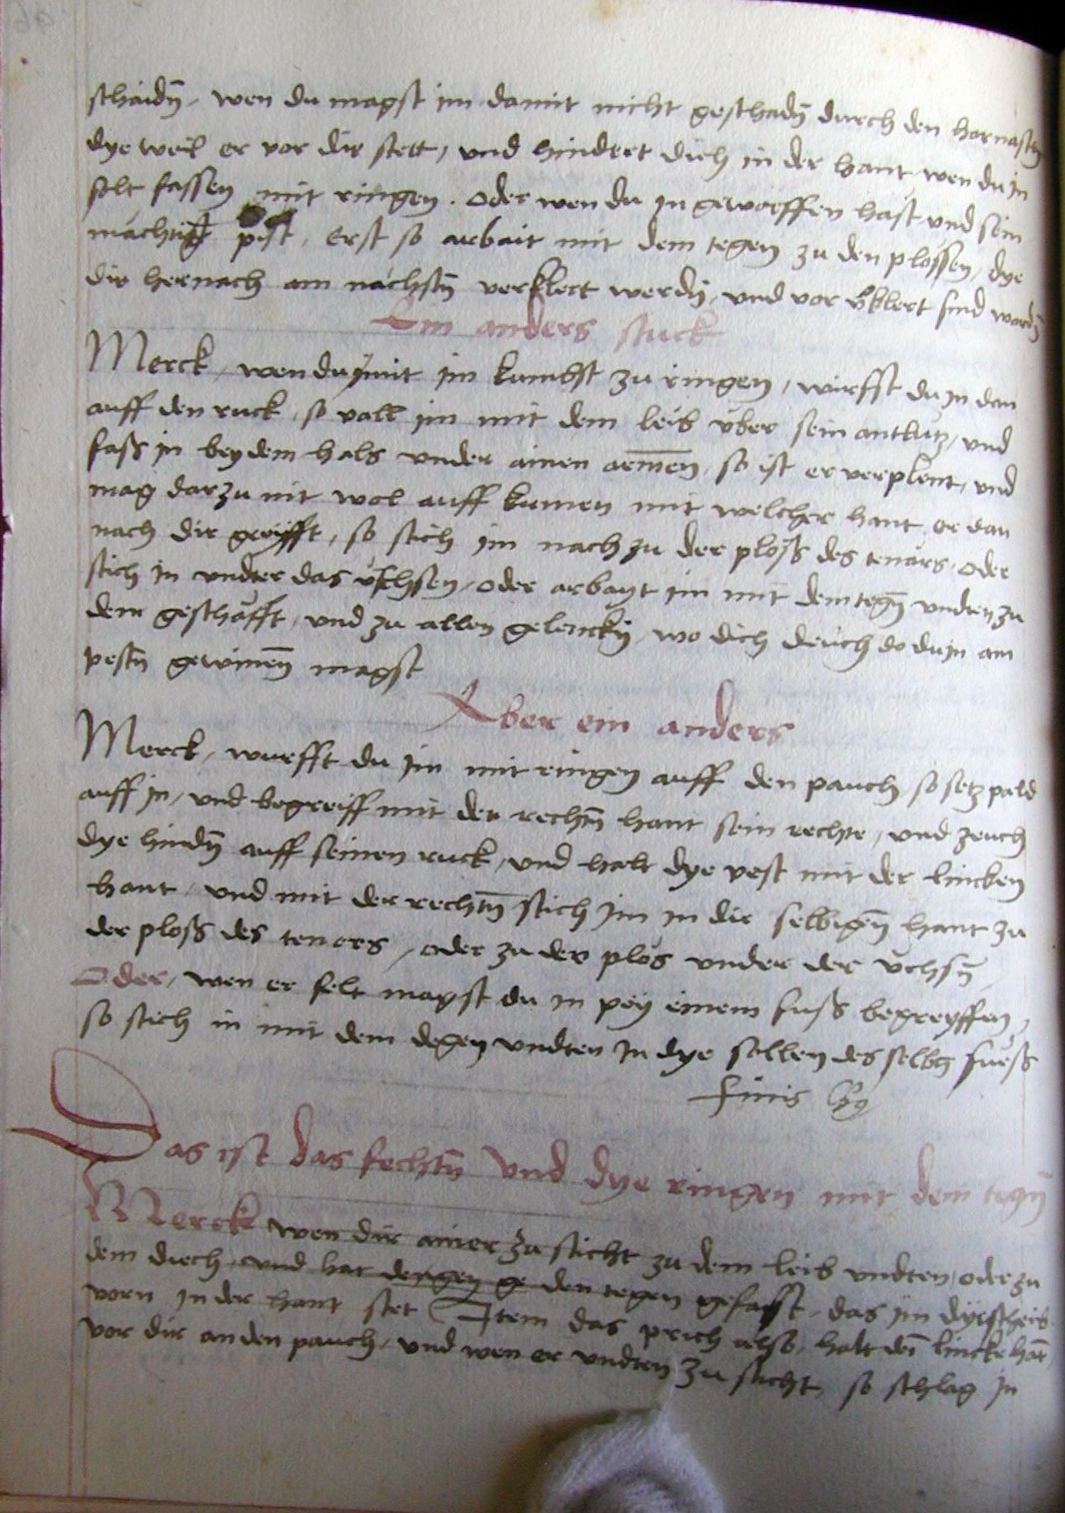 schaidn̄, wen du magst im damit nicht geschadn̄ durch den harnasch
dye weil er vor dir stett, und hindert dich in der hant wen du in
solt fassen mit ringen. Oder wen du in geworffen hast und sein
mächtig pist, Erst so arbait mit dem tegen zu den plossen, dye
dir hernach am nachstn̄ verklert werdn̄, und vor v̄klert sind wordn̄
Ein anders stuck
Merck, wen du mit im kumbst zu ringen, wirfst du in dan
auff den ruck, so vall im mit dem leib über sein antlutz, und
fass in bey dem hals under ainen armen̄, so ist er verplent, und
mag darzu nit wol auff kumen mit welcher hant er dan
nach dir greyfft, so stich im nach zu der ploss des tenars oder
stich in undter das üchsen, oder arbayt im mit dem tegn̄ undten zu
dem geschäfft, und zu allen gelenckn̄, wo dich deuch do du in am
pestn̄ gewinen̄ magst
Aber ein anders
Merck, wurfft du im mit ringen auff den pauch so setz pald
auff in, und begreiff mit der rechtn̄ hant sein rechte, und zeuch
dye hindn̄ auff seinen ruck, und halt dye vest mit der lincken
hant, und mit der rechtn̄ stich im in die selbigen̄ hant zu
der ploss des teners, oder zu der plös under der üchsn̄
Oder, wen er felt magst du in pey einem fuss begreyffen,
so stich in mit dem degen undten in dye sollen des selbn̄ fuess
Finis
Das ist das fechtn̄ Und dye ringen mit dem tegn̄
Merck wen dir ainer zu sticht zu dem leib undten, oder zu
dem diech, und hat den tegen gefasst, das im dye scheib
vorn in der hant stet Item das prich also, halt dein̄ lincke hāt
vor dir an den pauch, und wen er undten zu sticht, so schlag in